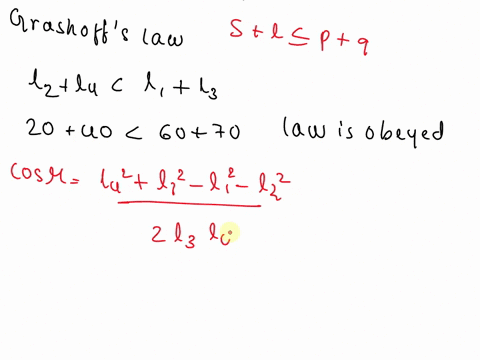 Grashoff's law S + l ≤ p + q
l₂ + l₄ < l₁ + l₃
20 + 40 < 60 + 70 law is obeyed
cos μ = l₄² + l₃² - l₁² - l₂²
2 l₃ l₄